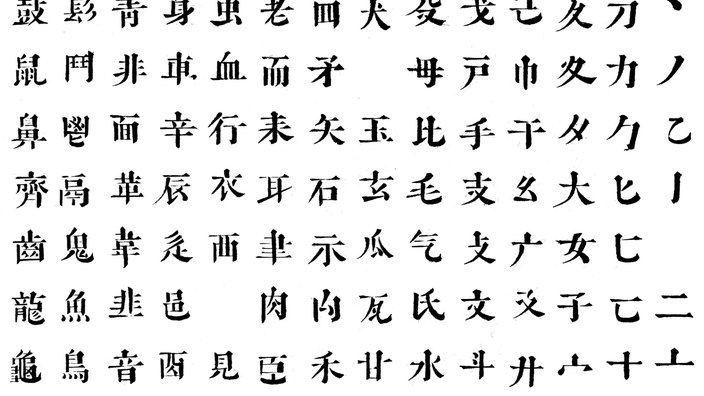 丶丿乙亅二亠
刀力勹匕匚匸十
夂夊夕大女子宀
己巾干幺广廴廾
戈戶手支攴文斗
殳毋比毛气氏水
犬玉玄瓜瓦甘
目矛矢石示禸禾
老而耒耳聿肉臣
虫血行衣襾見
身車辛辰辵邑酉
靑非面革韋韭音
髟鬥鬯鬲鬼魚鳥
鼓鼠鼻齊齒龍龜